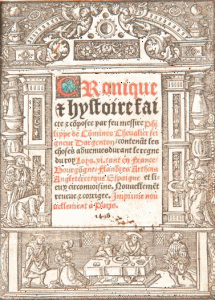 CRonique
& hystoire fai
cte & cõposee par feu messire Phi
lippe de Cõmines Cheualier sei
gneur Dargenton, contenãt les
choses aduenues durant le regne
du roy Loys.xi. tant en France,
Bourgõgne, Flandres, Arthois,
Angleterre que Espaigne et li-
eux circonuoisins. Nouuellemẽt
reueue & corrigee. Imprime nou
uellement a Paris.